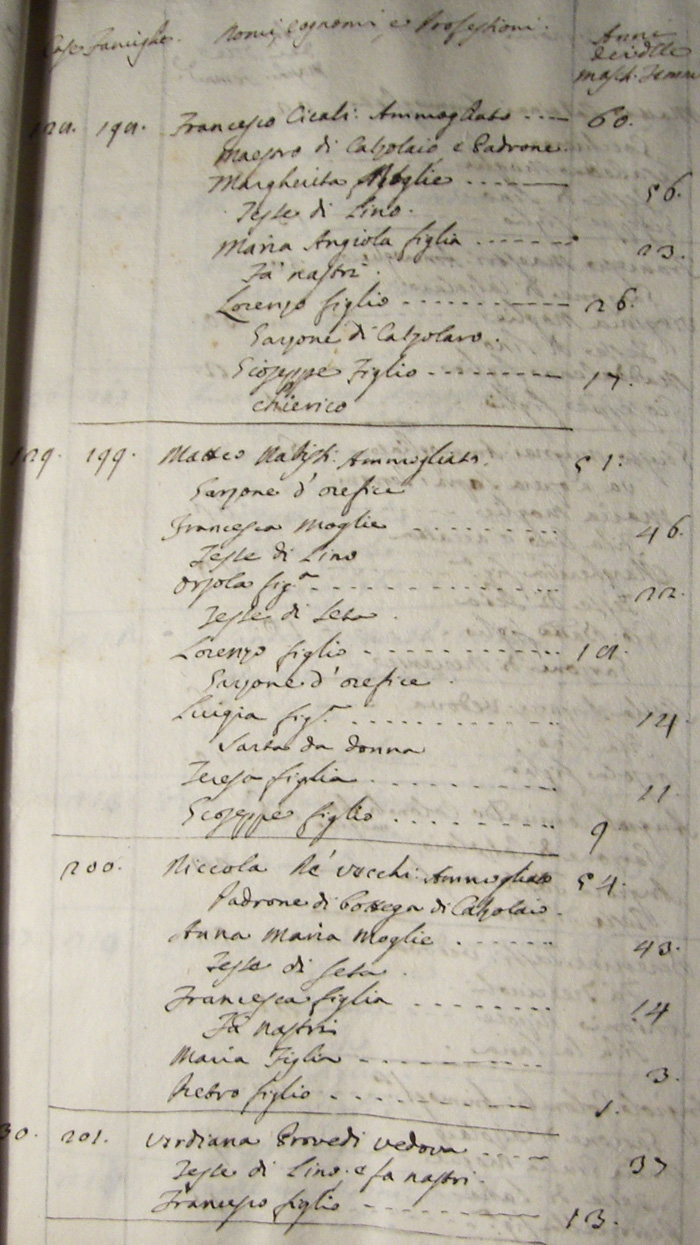 Case Famiglie. Nomi, cognomi, e Professioni. Anni
dei
Masch. Femm
191. Francesco Cicali. Ammogliato ... 60.
Maestro di Calzolaio e Padrone
Margherita Moglie ... 56.
Tesse di Lino.
Maria Angiola figlia ... 23.
Fà nastri
Lorenzo figlio ... 26.
Garzone di Calzolaro.
Gioseppe Figlio ... 17.
Chierico
129. 199. Matteo Ammogliato. 51.
Garzone d'orefice
Francesca Moglie ... 46.
Tesse di Lino
Orsola fig.a ... 22.
Tesse di Seta
Lorenzo figlio ...
Garzone d'orefice
Luigia fig.a ... 14.
Sarta da donna
Teresa figlia ... 11
Gioseppe figlio ... 9
200. Niccola Ammogliato 54.
Padrone di bottega di Calzolaio.
Anna Maria Moglie ... 43.
Tesse di Seta
Francesca figlia ... 14
Fà nastri
Maria Figlia ... 3.
Pietro figlio ... 1.
30. 201. Verdiana Provedi vedova ... 37
Tesse di Lino e fa nastri.
Francesco figlio ... 13.